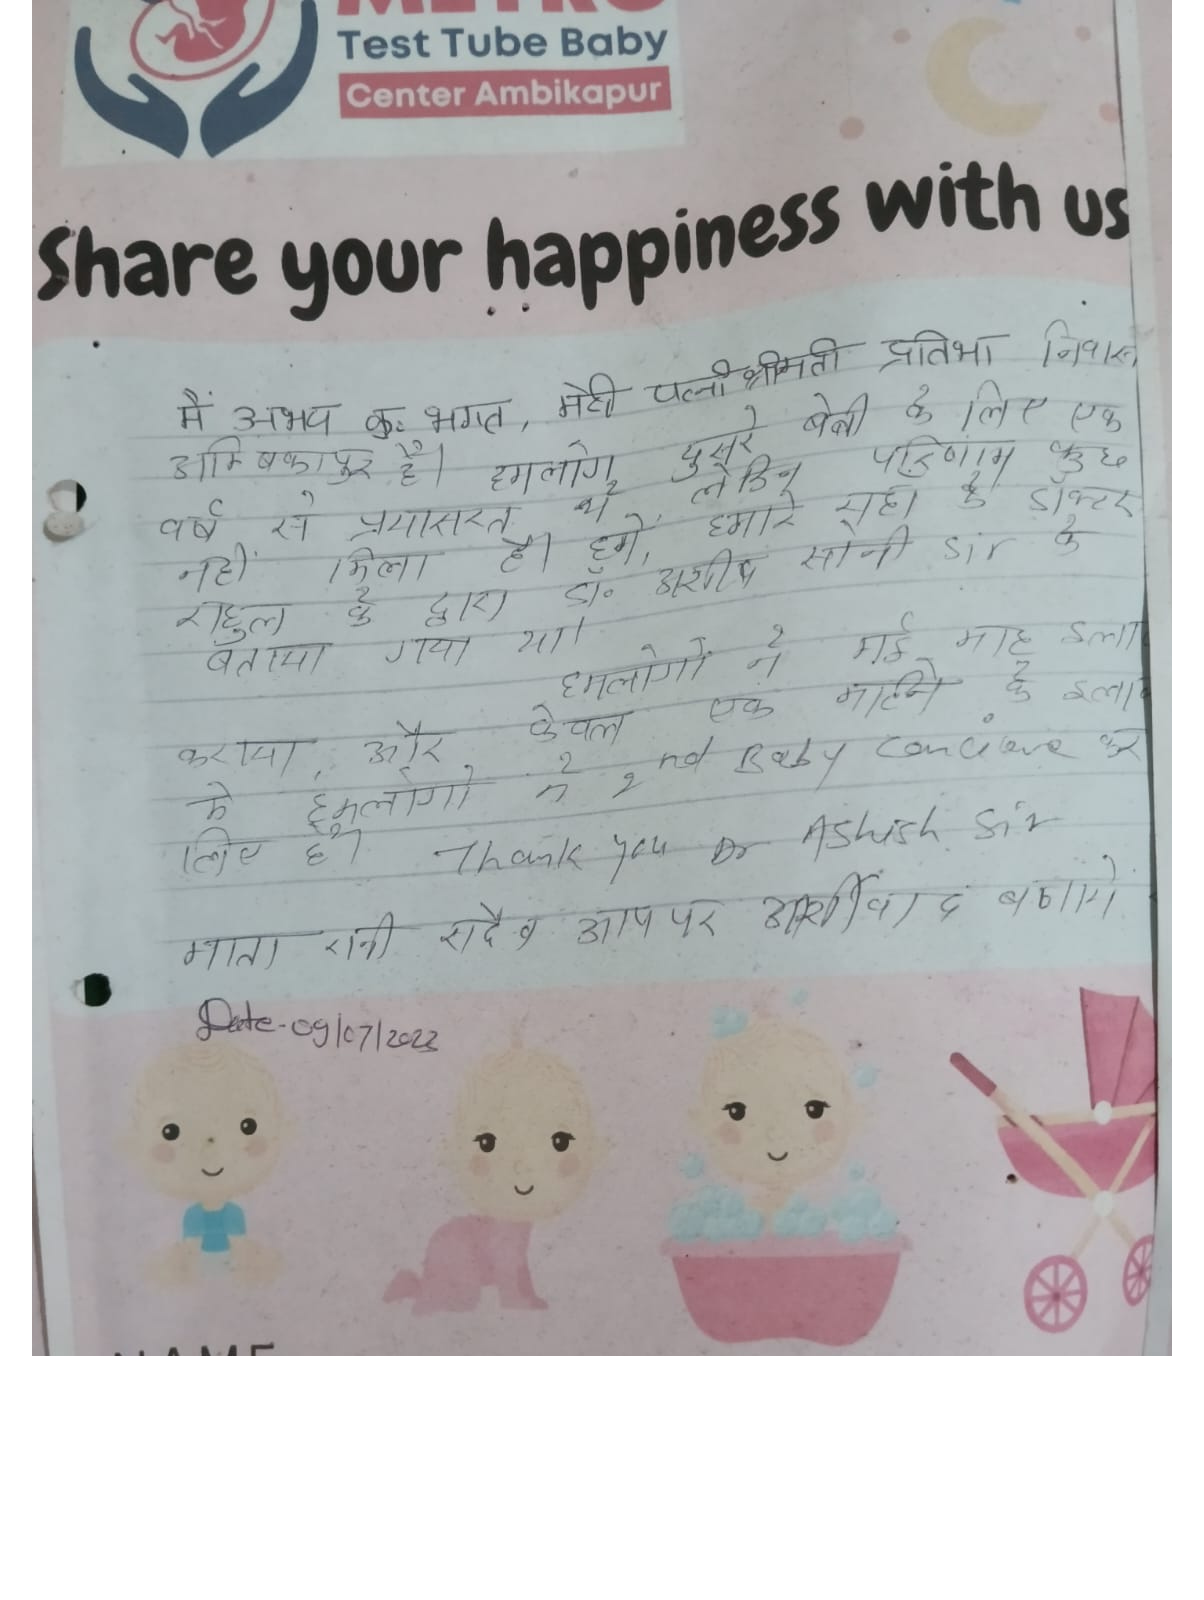 METRO
Test Tube Baby
Center Ambikapur
Share your happiness with us
मैं अभय कुः भगत, मेरी पत्नी श्रीमती प्रतिभा निवास
अम्बिकापुर है। हमलोग दुसरे बेबी के लिए एक
वर्ष से प्रयासरत थे, लेकिन परिणाम कुछ
नहीं मिला है। हमें, हमारे यहां के डॉक्टर
राहुल के द्वारा डॉ॰ अशीष सोनी sir के
बताया गया था।
हमलोगों ने मई माह इला
कराया, और केवल एक महिने के इला
में हमलोगों ने 2nd Baby Concieve कर
लिए है। Thank you Dr Ashish Sir
माता रानी सदैव आप पर आर्शीवाद बणाये
Date-09/07/2023
NAME